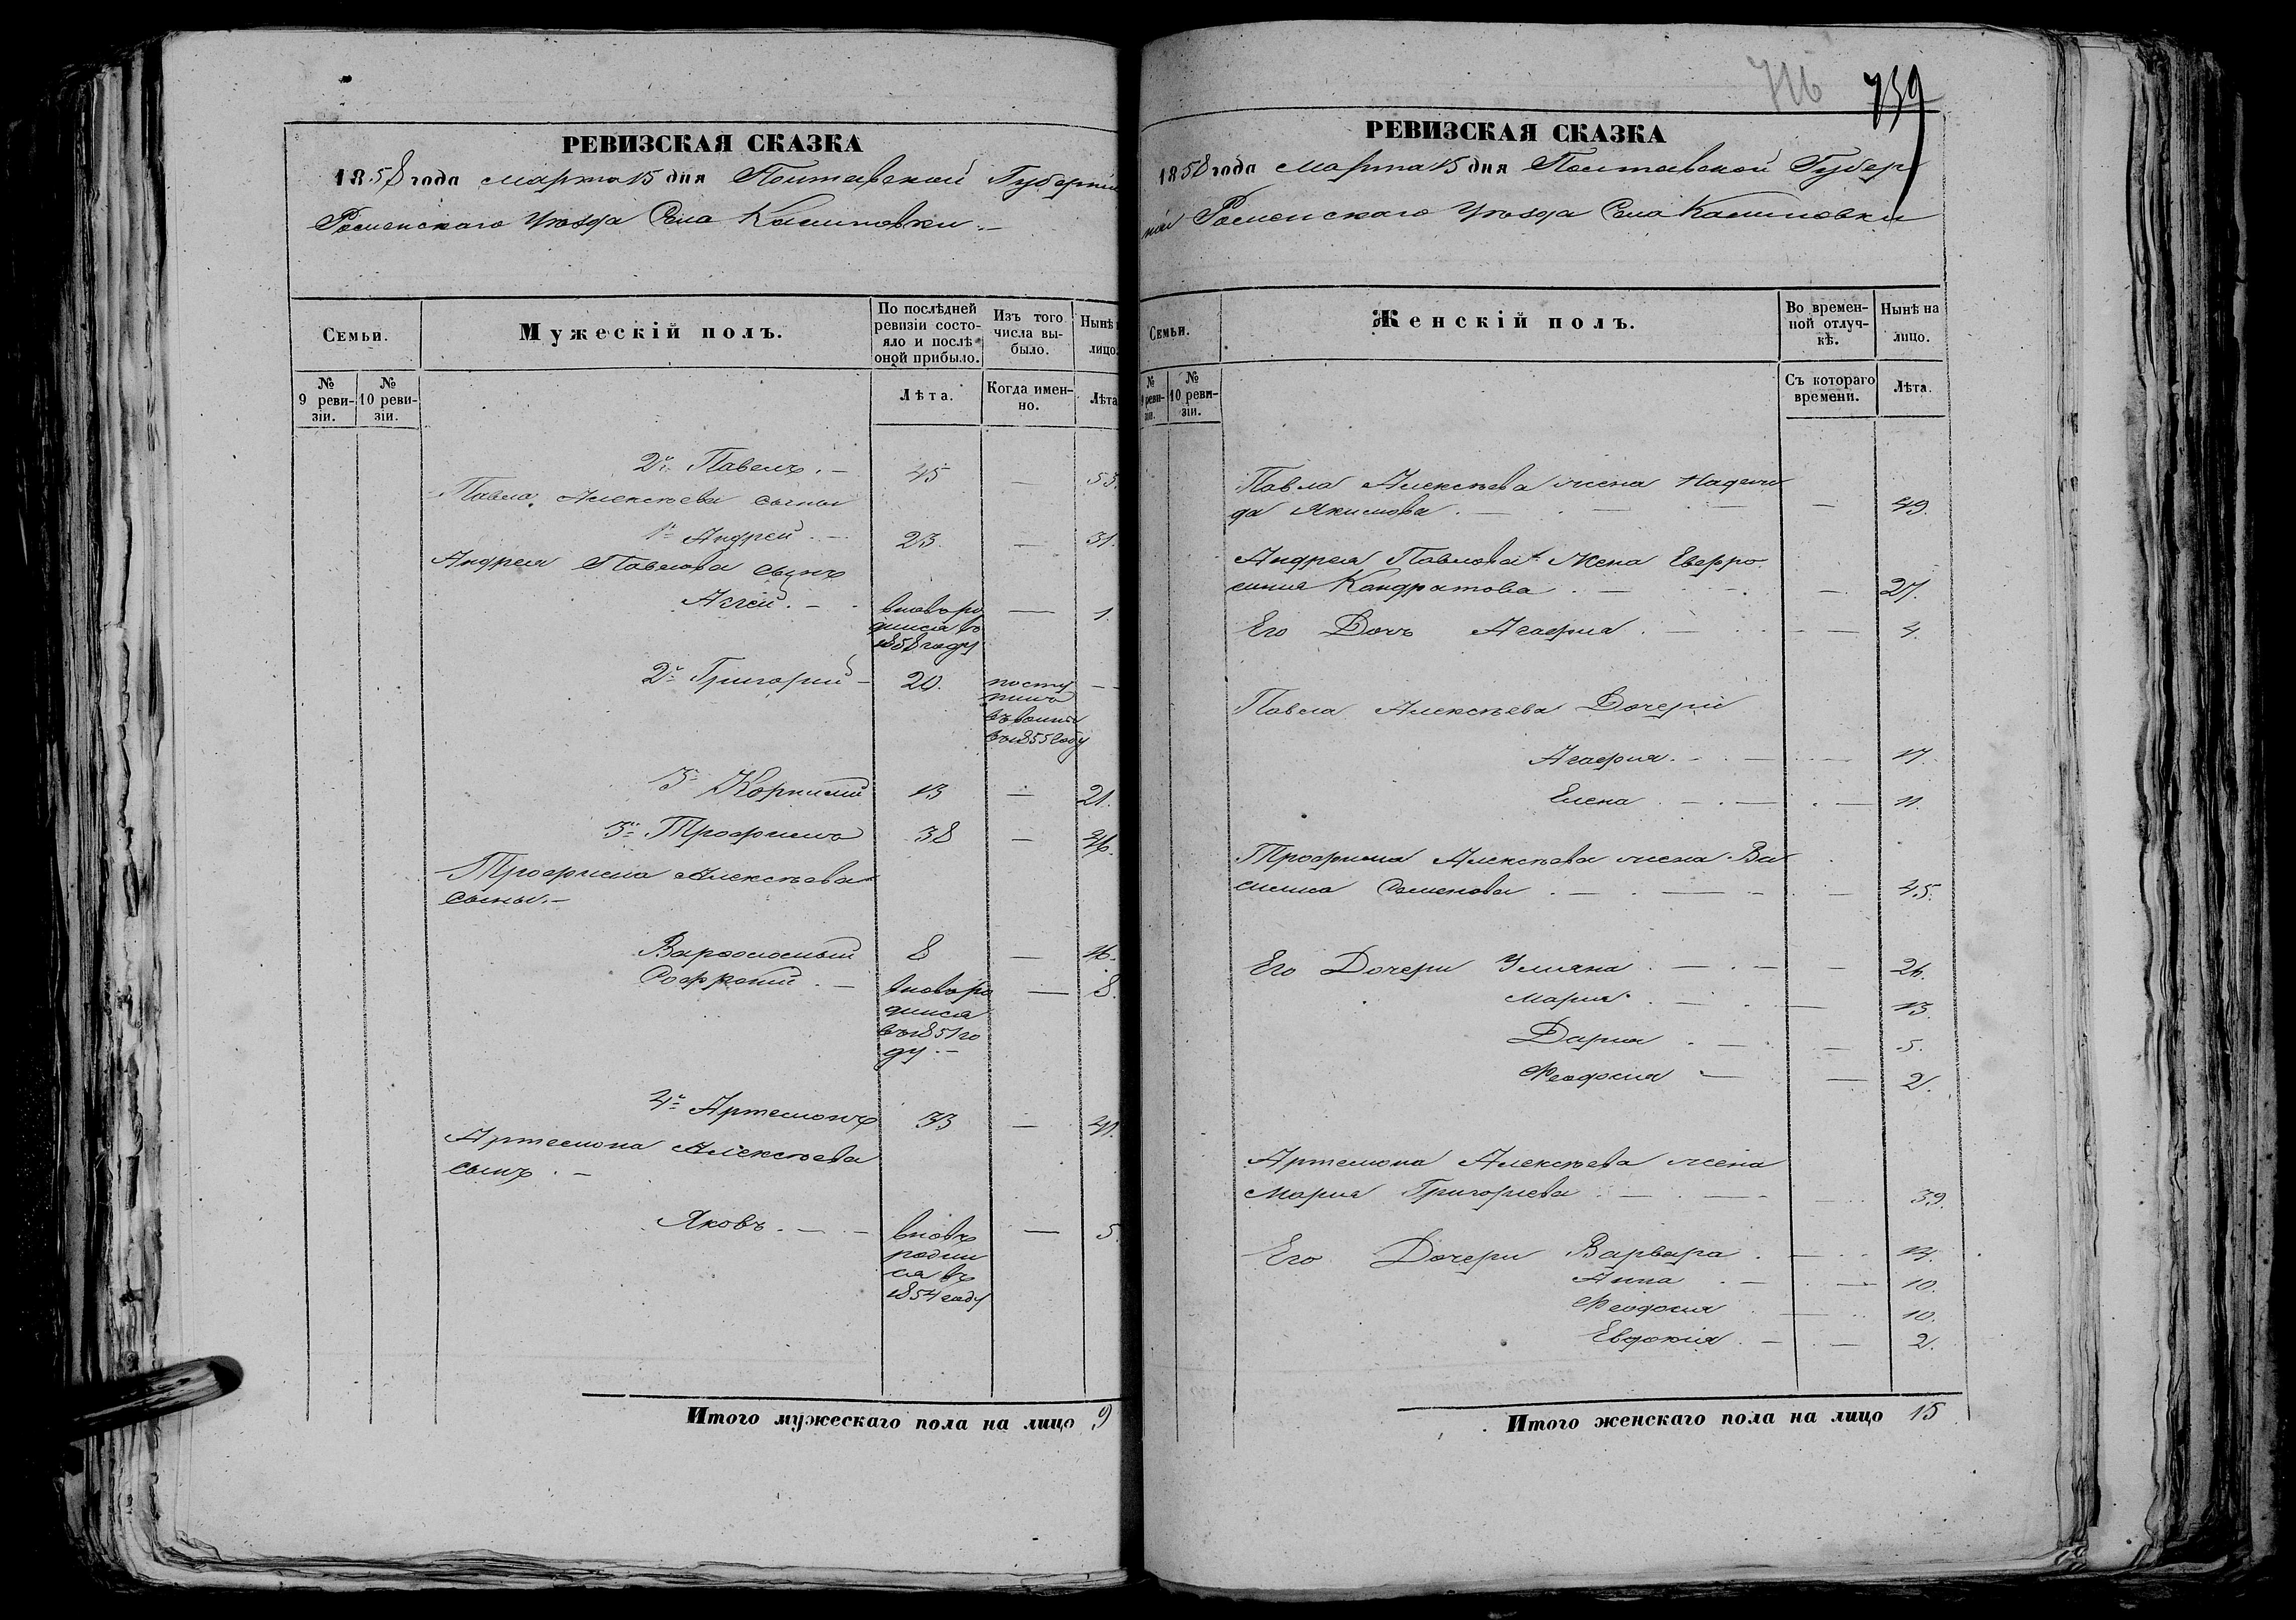 РЕВИЗСКАЯ СКАЗКА
1858 года марта 15 дня Полтавской Губерніи
Роменскаго Уѣзда Села Калиновки
Семьи.
Мужескій полъ.
По послѣдней ревизіи состояло и послѣ оной прибыло.
Изъ того числа выбыло.
Нынѣ
лицо.
№ 9 ревизіи.
№ 10 ревизіи.
Лѣта.
Когда именно.
Лѣта
2й Павелъ. — 45 — 53.
Павла Алексѣева сыны
1й Андрей. — 23. — 31.
Андрея Павлова сынъ
Агѣй. — вновь ро — 1.
дился въ
1858 году
2й Григорій — 20. посту —
пилъ
въ
въ 1855 году
3й Корнилій 13 — 21.
3й Трофимъ 38 — 46.
Трофима Алексѣева
сыны. —
Варѳоломей 8 — 16.
вновь ро — 8.
дился
въ 1851 го
ду. —
4й Артемонъ 33 — 41.
Артемона Алексѣева
сынъ. —
Яковъ. — вновь — 5.
родил
ся въ
1854 году
Итого мужескаго пола на лицо 9
716 739
РЕВИЗСКАЯ СКАЗКА
1858 года марта 15 дня Полтавской Губер
ніи Роменскаго Уѣзда Села Калиновки
Семьи.
Женскій полъ.
Во временной отлучкѣ.
Нынѣ на лицо.
№ 9 ревизіи.
№ 10 ревизіи.
Съ котораго времени.
Лѣта.
Павла Алексѣева жена Надеж
да Якимова. — — 49.
Андрея Павлова жена Евфро
синия Кондратова. — — 27.
Его Дочь Агафия. — — 4.
Павла Алексѣева Дочери
Агафия. — 17.
Елена. — — 11.
Трофима Алексѣева жена Ва
силиса Семенова. — — 45.
Его Дочери Улияна. — — 26.
Мария. — — 13.
Дария. — — 5.
Феодосия — — 2.
Артемона Алексѣева жена
Мария Григориева. — — 39.
Его Дочери Варвара. — 14.
Анна. — — 10.
Феодосия. — 10.
Евдокия. — — 2.
Итого женскаго пола на лицо 15